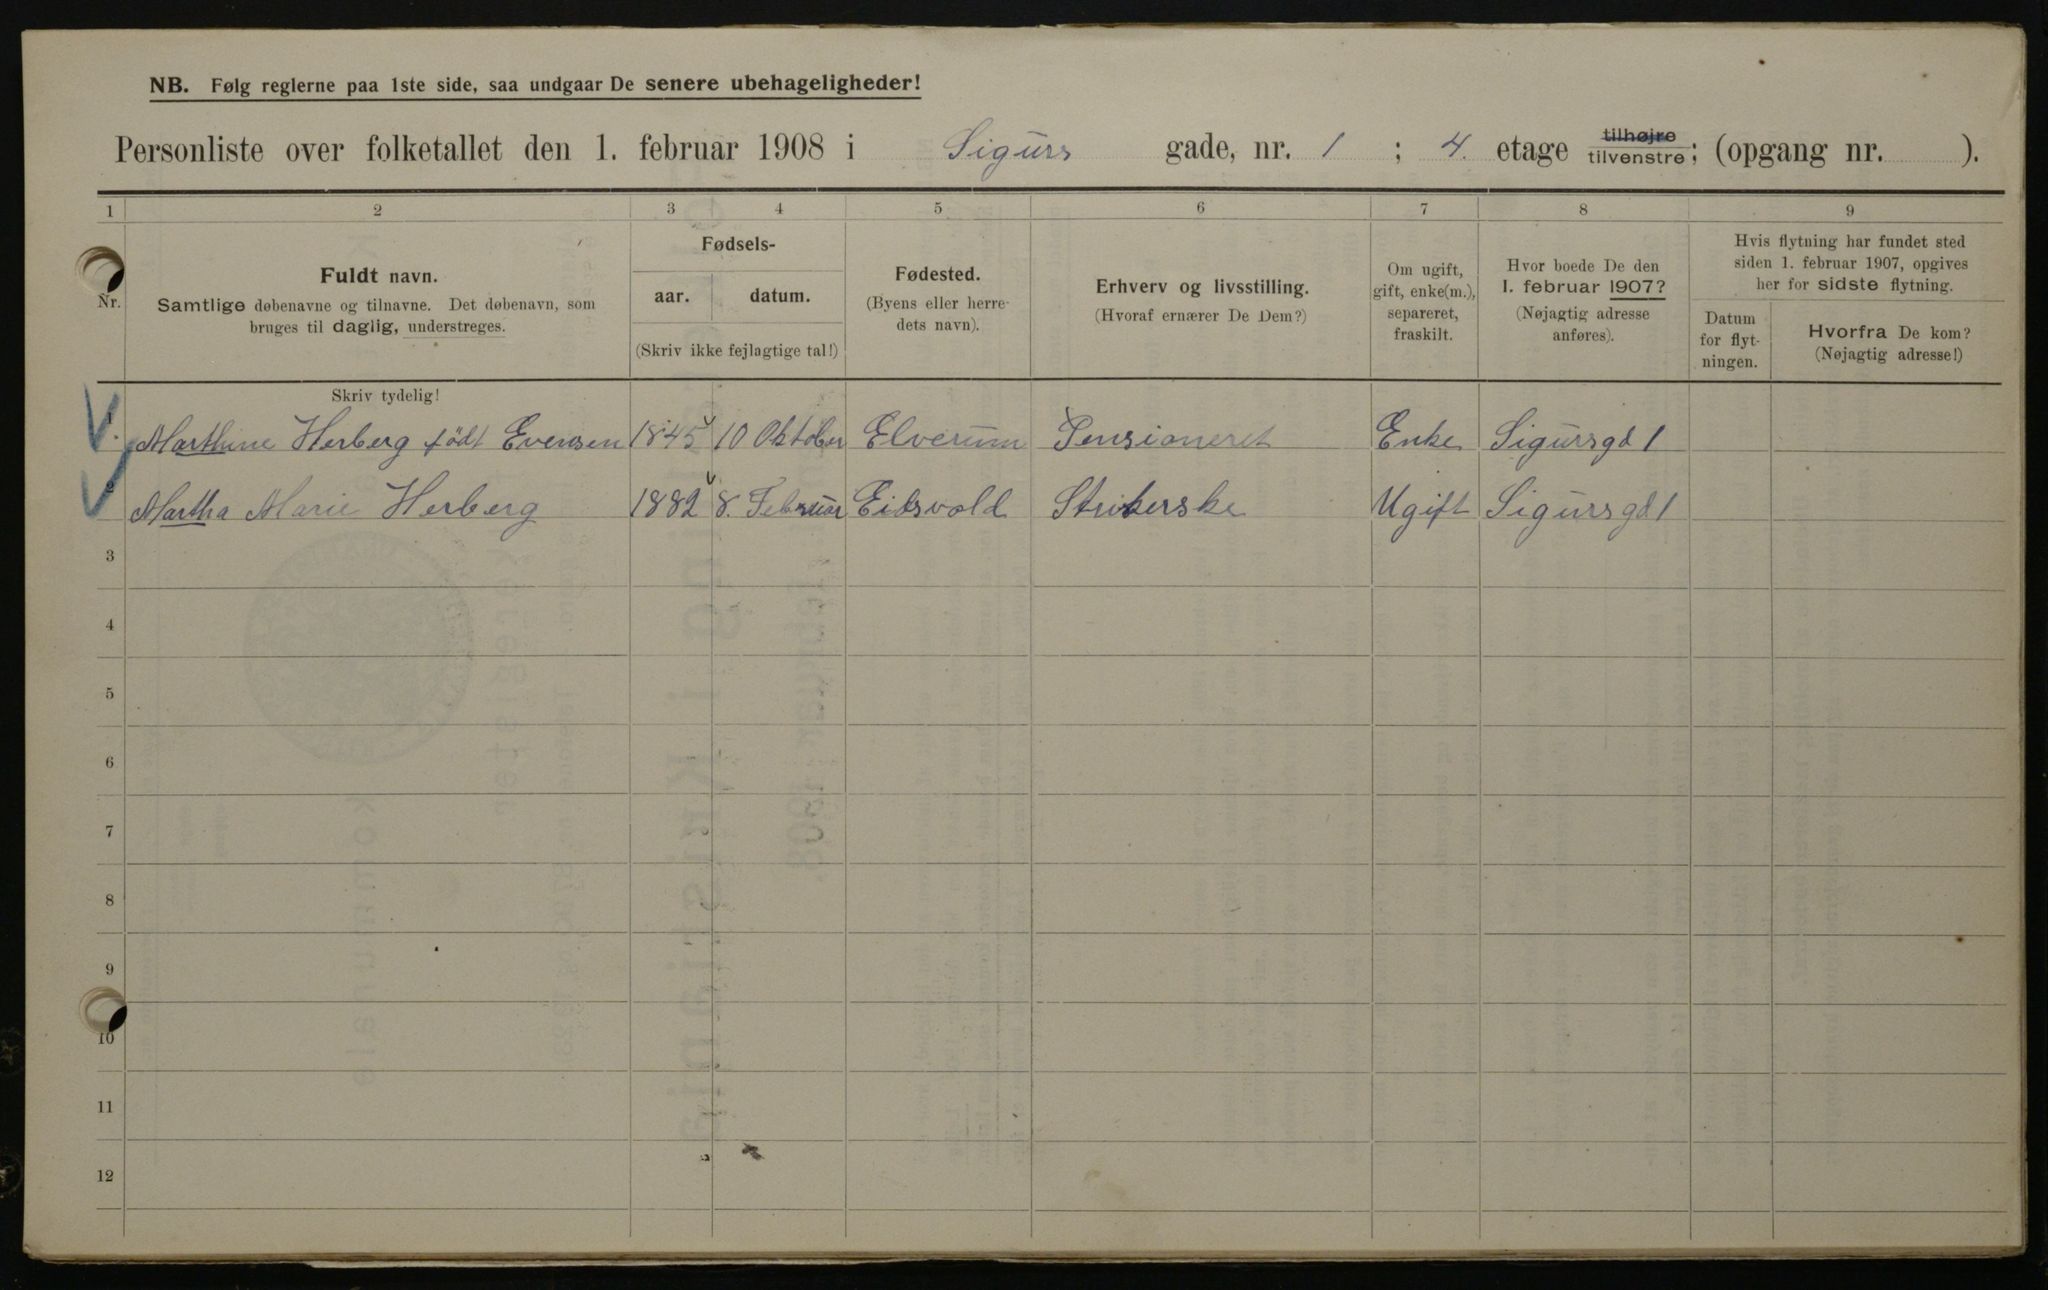 NB. Følg reglerne paa 1ste side, saa undgaar De senere ubehageligheder!
Personliste over folketallet den 1. februar 1908 i Sigurs gade, nr. 1 ; 4. etage tilhøjre tilvenstre; (opgang nr. ).
1 2 3 4 5 6 7 8 9
Nr.
Fuldt navn.
Samtlige døbenavne og tilnavne. Det døbenavn, som
bruges til daglig, understreges.
Fødsels-
aar. datum.
(Skriv ikke fejlagtige tal!)
Fødested.
(Byens eller herre-
dets navn).
Erhverv og livsstilling.
(Hvoraf ernærer De Dem?)
Om ugift,
gift, enke(m.),
separeret,
fraskilt.
Hvor boede De den
1. februar 1907?
(Nøjagtig adresse
anføres).
Hvis flytning har fundet sted
siden 1. februar 1907, opgives
her for sidste flytning.
Datum
for flyt-
ningen.
Hvorfra De kom?
(Nøjagtig adresse!)
Skriv tydelig!
1. Marthine Herberg født Evensen 1845 10 Oktober Elverum Pensioneret Enke Sigursgd 1
2 Martha Marie Herberg 1882 8. Februar Eidsvold Strikerske Ugift Sigursgd 1
3
4
5
6
7
8
9
10
11
12